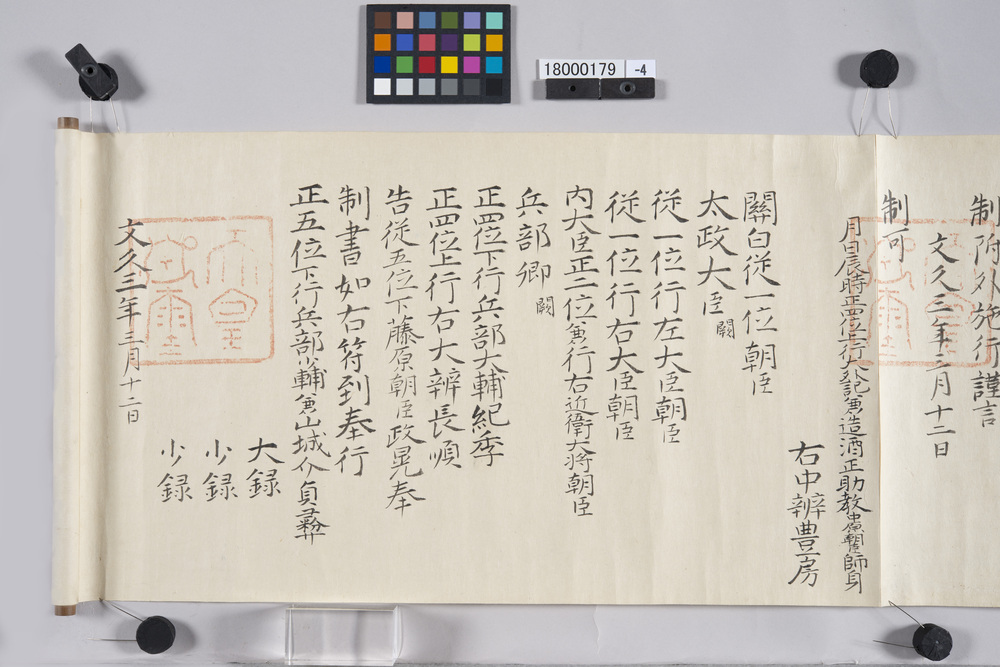 18000179 -4
制附外施行謹言
文久三年三月十二日
制可
月日辰時正四位上行大外記兼造酒正助教中原朝臣師身
右中辨豊房
關白從一位朝臣
太政大臣闕
從一位行左大臣朝臣
從一位行右大臣朝臣
内大臣正二位兼行右近衛大将朝臣
兵部卿闕
正四位下行兵部大輔紀季
正四位上行右大辨長順
告從五位下藤原朝臣政晃奉
制書如右符到奉行
正五位下行兵部少輔兼山城介貞彜
大録
少録
少録
文久三年三月十二日